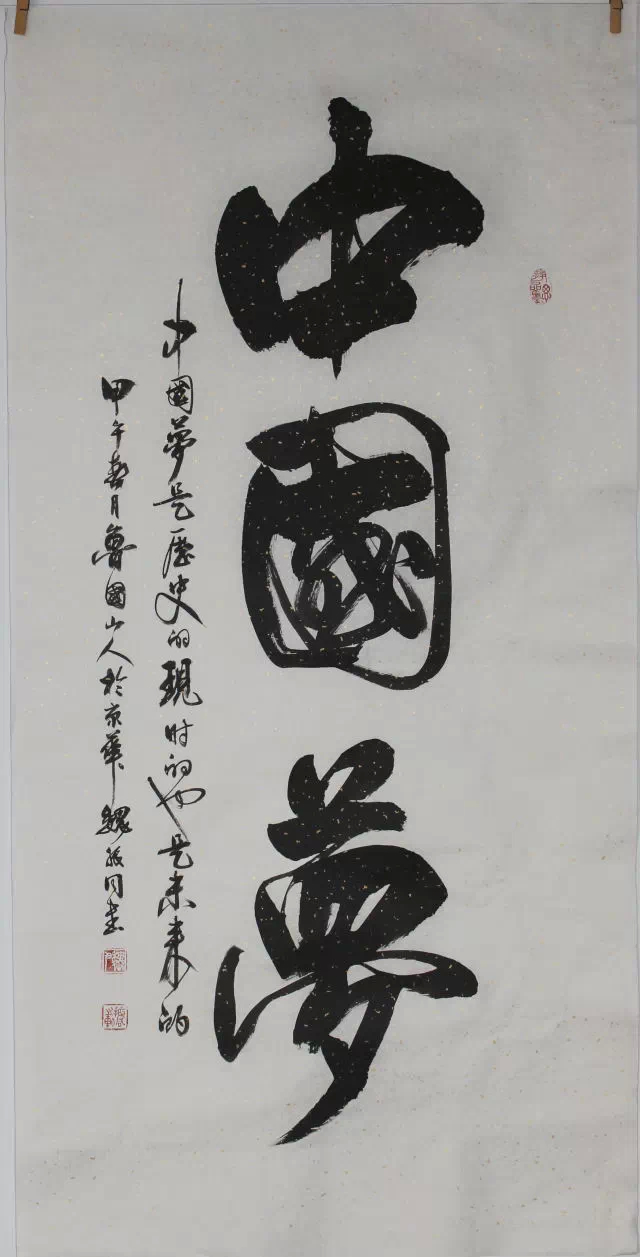 中國夢
中國夢是歷史的現时的也是未来的
甲午春月魯國山人於京華魏振同書